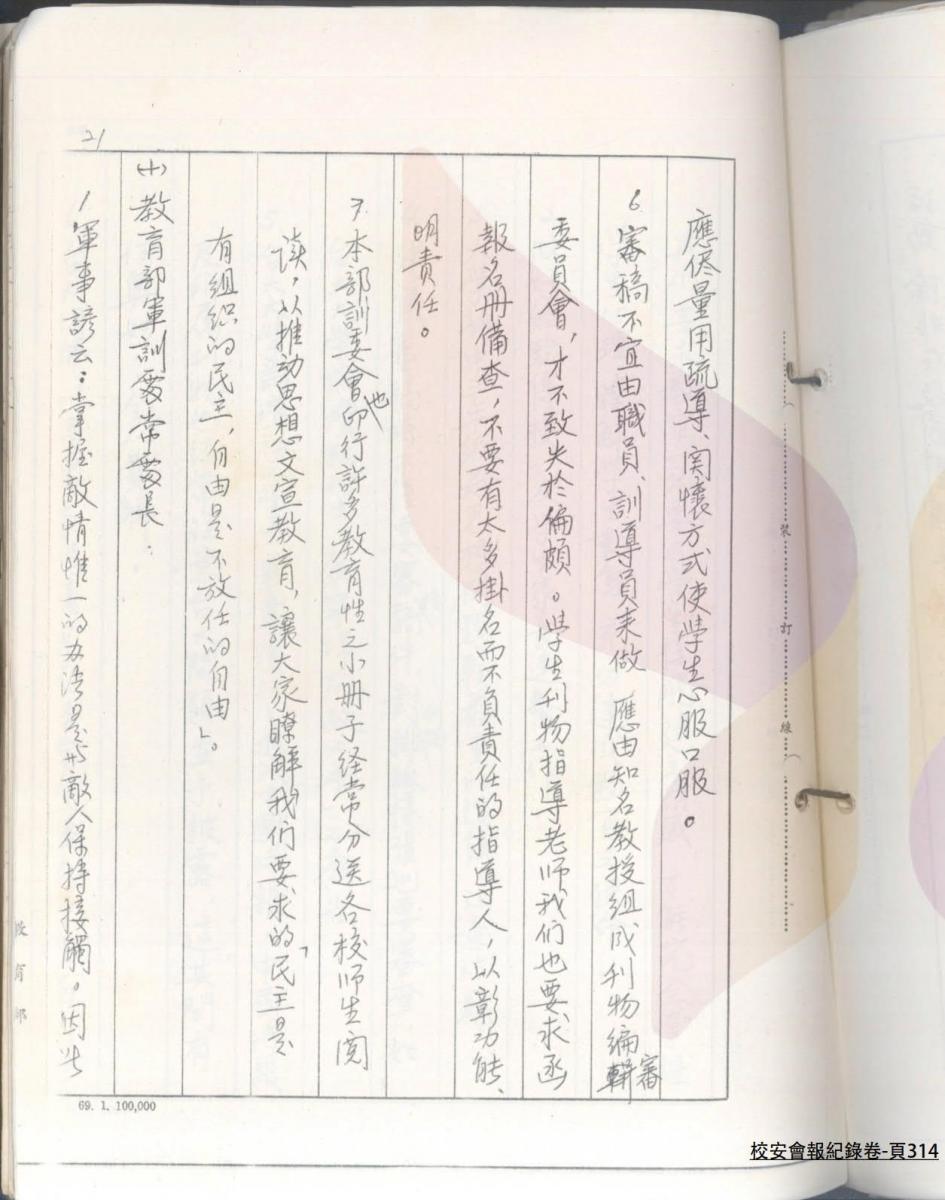 應侭量用疏導、関懷方式使學生心服口服。
6. 審稿不宜由職員、訓導員来做 應由知名教授組成刊物編審
委員會，才不致失於偏頗。學生刊物指導老师我们也要求函
報名冊備查，不要有太多掛名而不負責任的指導人，以彰功能、
明責任。
7. 本部訓委會也印行許多教育性之小冊子経常分送各校师生閱
读，以推动思想文宣教育，讓大家瞭解我们要求的「民主是
有组织的民主，自由是不放任的自由」。
(十)教育部軍訓處常處長：
1. 軍事諺云：掌握敵情惟一的办法是与敵人保持接觸。因此
21
裝
訂
線
教育部
69. 1. 100,000
校安會報紀錄卷-頁314